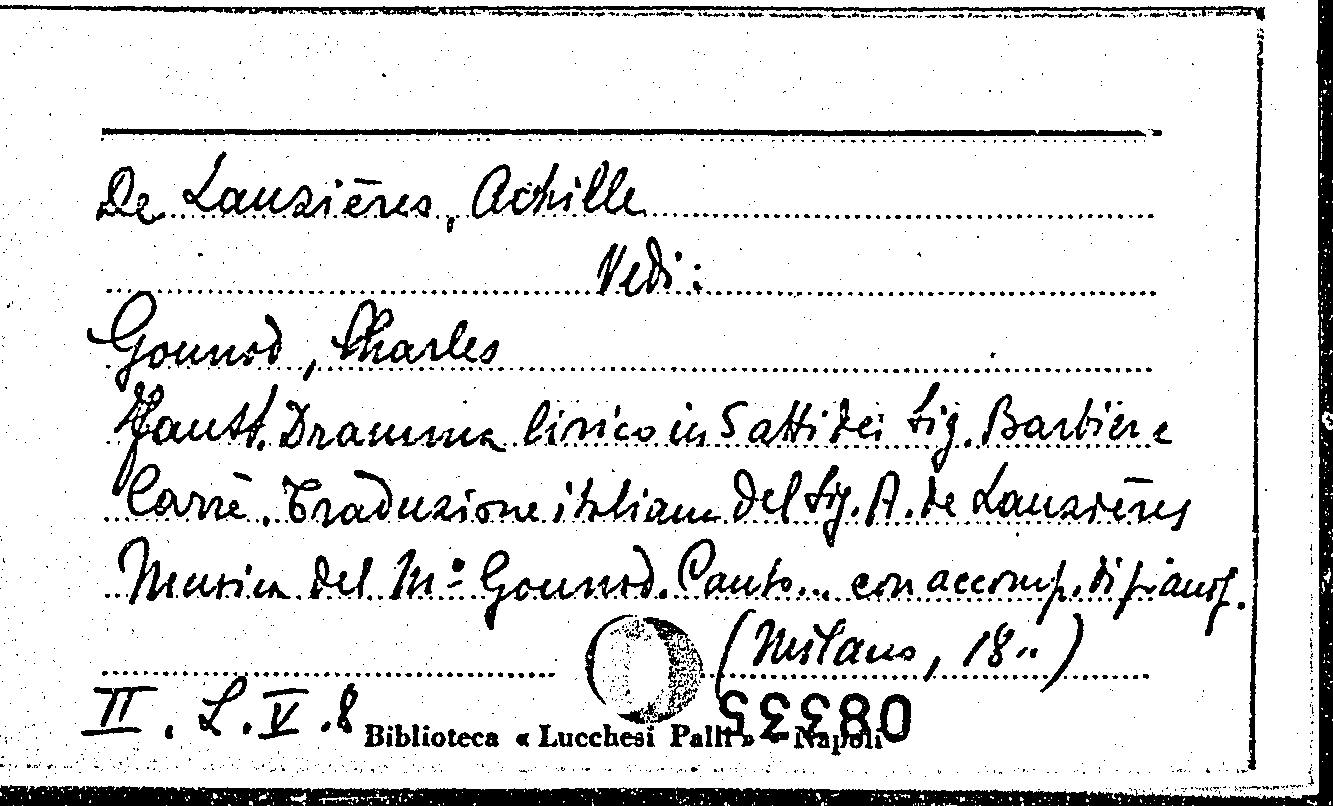 De Lauzières, Achille
Vedi:
Gounod, Charles
Faust. Dramma lirico in 5 atti dei Sig. Barbier e
Carrè. Traduzione italiana del Sig. A. de Lauzières
Musica del M.º Gounod. Canto... con accomp. di pianof.
(Milano, 18..)
II. L. V. 8
Biblioteca « Lucchesi Palli » - Napoli